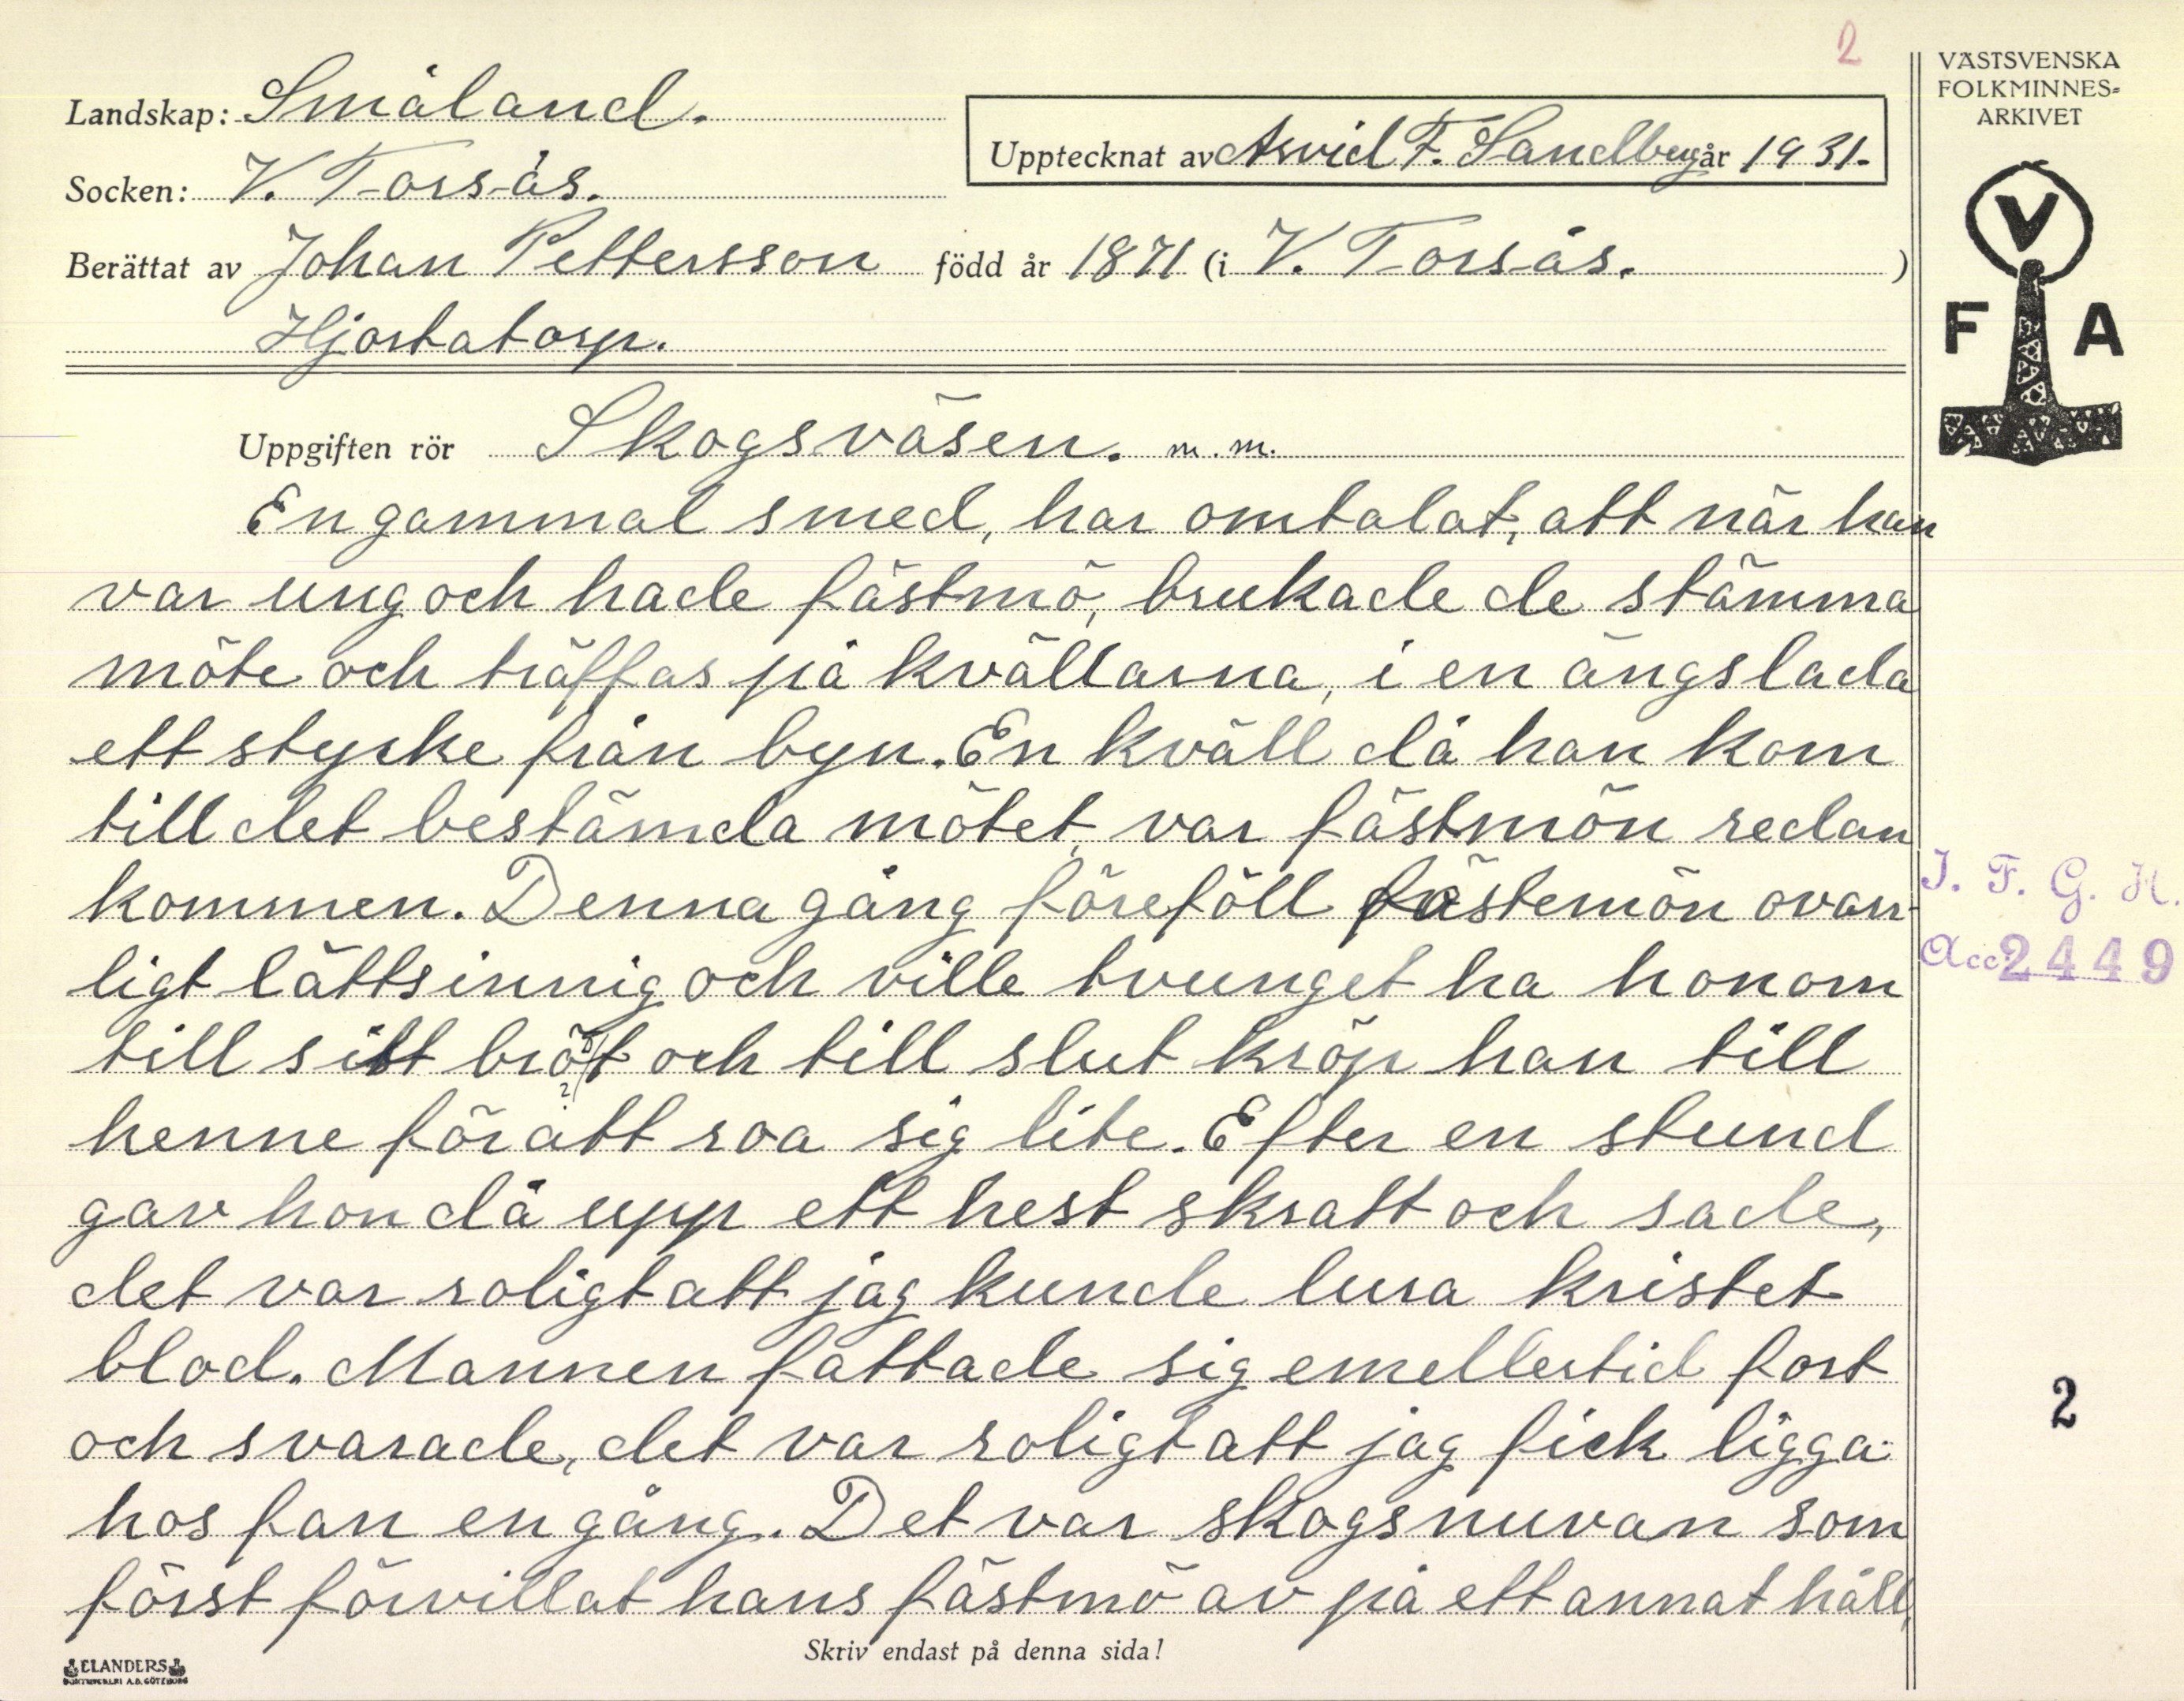 2
VÄSTSVENSKA
FOLKMINNES-
ARKIVET
Landskap: Småland.
Upptecknat av Arvid F. Sandberg år 1931.
Socken: V. Torsås.
Berättat av Johan Pettersson född år 1871 (i V. Torsås. )
Hjortatorp.
V
F A
Uppgiften rör Skogsväsen. m. m.
En gammal smed, har omtalat, att när han
var ung och hade fästmö, brukade de stämma
möte och träffas på kvällarna, i en ängslada
ett stycke från byn. En kväll då han kom
till det bestämda mötet, var fästmön redan
kommen. Denna gång föreföll fästemön ovan-
ligt lättsinnig och ville tvunget ha honom
till sitt bröt och till slut kröp han till
henne för att roa sig lite. Efter en stund
gav hon då upp ett hest skratt och sade,
det var roligt att jag kunde lura kristet
blod. Mannen fattade sig emellertid fort
och svarade, det var roligt att jag fick ligga
hos fan en gång. Det var skogsnuvan som
först förvillat hans fästmö av på ett annat håll,
I. F. G. H.
Acc. 2449
2
Skriv endast på denna sida!
ELANDERS
BOKTRYCKERI A.B. GÖTEBORG